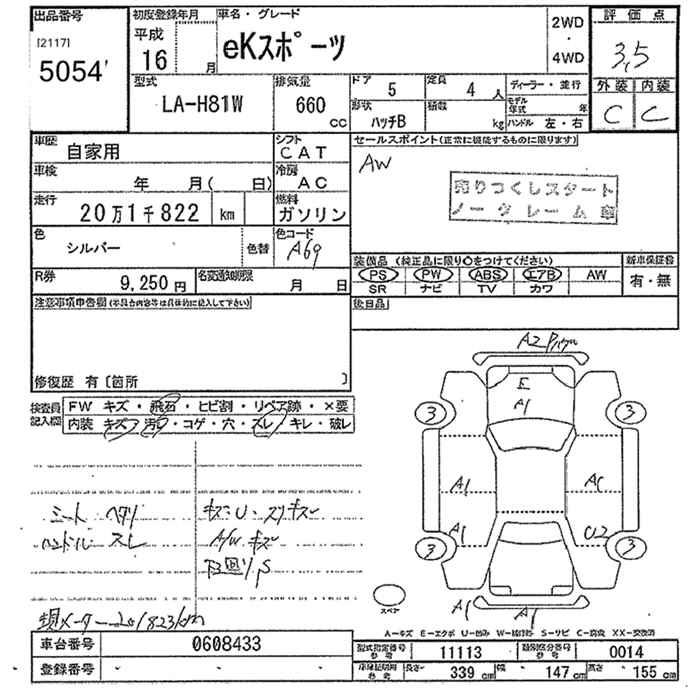 出品番号
[2117]
5054'
初度登録年月
平成
16 月
車名・グレード
eKスポーツ
2WD
・
4WD
評価点
3,5
外装 内装
C C
型式
LA-H81W
排気量
660
CC
ドア
5
定員
4 人
ディーラー・並行
形状
ハッチB
積載
kg
モデル年式 年
ハンドル 左・右
車歴
自家用
シフト
CAT
車検
年 月( 日)
冷房
AC
走行
20万1千822 km
燃料
ガソリン
色
シルバー
色替
色コード
A69
R券
9,250円
名変通知期限
月 日
セールスポイント(正常に機能するものに限ります)
AW
売りつくしスタート
ノークレーム車
装備品 (純正品に限り○をつけてください)
新車保証書
PS PW ABS エアB AW
SR ナビ TV カワ
有・無
後日品
注意事項申告欄(不具合内容等は具体的に記入して下さい)
修復歴 有〔箇所 〕
検査員記入欄
FW キズ・飛石・ヒビ割・リペア跡・×要
内装 キズ・汚レ・コゲ・穴・スレ・キレ・破レ
シート ヘタリ
ハンドル スレ
キズ・U・スリキズ
A/W キズ
下回り S
現メーター 201823km
E
A1
3
3
A1
A1
A1
U2
3
3
A1
A1
スペア
A-キズ E-エクボ U-凹み W-補修跡 S-サビ C-腐食 XX-交換済
車台番号
0608433
登録番号
型式指定番号 参考
11113
類別区分番号 参考
0014
車検証明用 参考
長さ 339 cm
幅 147 cm
高さ 155 cm